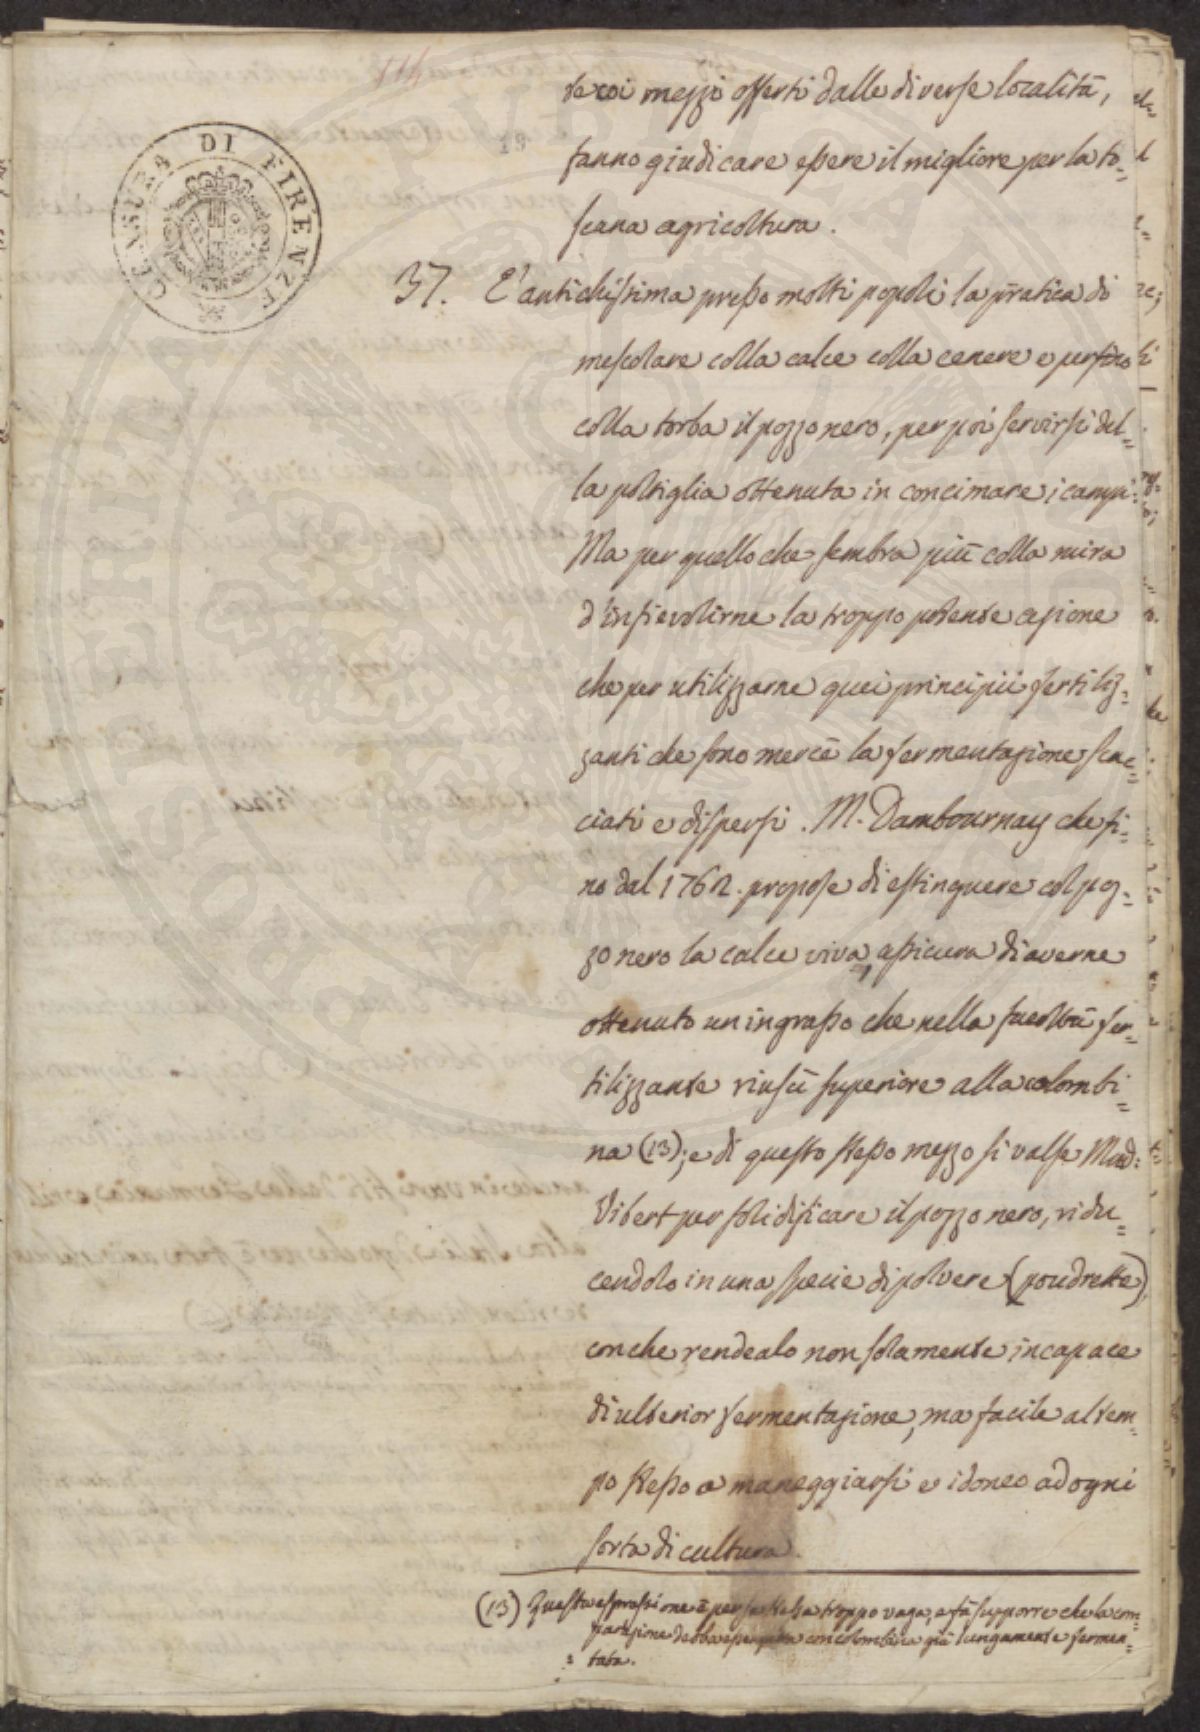 114
19
CENSURA DI FIRENZE
te coi mezzi offerti dalle diverse località,
fanno giudicare essere il migliore per la to=
scana agricoltura.
37. E' antichissima presso molti popoli la pratica di
mescolare colla calce colla cenere e perfino
colla torba il pozzo nero, per poi servirsi del=
la poltiglia ottenuta in concimare i campi.
Ma per quello che sembra più colla mira
d'infievolirne la troppo potente azione
che per utilizzarne quei principii fertiliz=
zanti che sono mercè la fermentazione scac=
ciati e dispersi. M. Dambournay che fi=
no dal 1762. propose di estinguere col poz=
zo nero la calce viva, assicura di averne
ottenuto un ingrasso che nella facoltà fer=
tilizzante riuscì superiore alla colombi=
na (13); e di questo stesso mezzo si valse Mad:
Vibert per solidificare il pozzo nero, ridu=
cendolo in una specie di polvere (poudrette),
con che rendealo non solamente incapace
di ulterior fermentazione, ma facile al tem=
po stesso a maneggiarsi e idoneo ad ogni
sorta di cultura.
(13) Questa espressione è per se stessa troppo vaga, e fà supporre che la com=
parazione debba essere colombina già lungamente fermen=
tata.